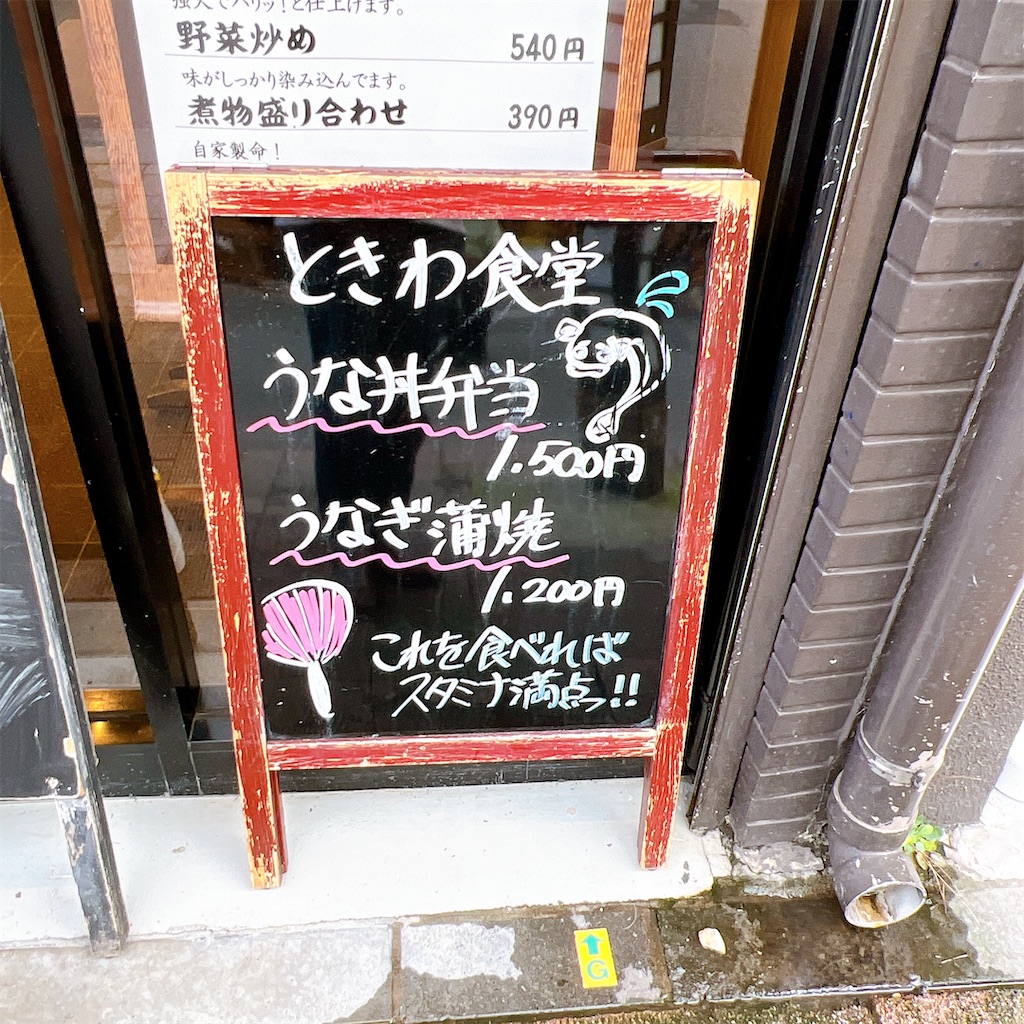 強火でパリッ!と仕上げます。
野菜炒め 540円
味がしっかり染み込んでます。
煮物盛り合わせ 390円
自家製命!
ときわ食堂
うな丼弁当
1.500円
うなぎ蒲焼
1.200円
これを食べれば
スタミナ満点っ!!
G